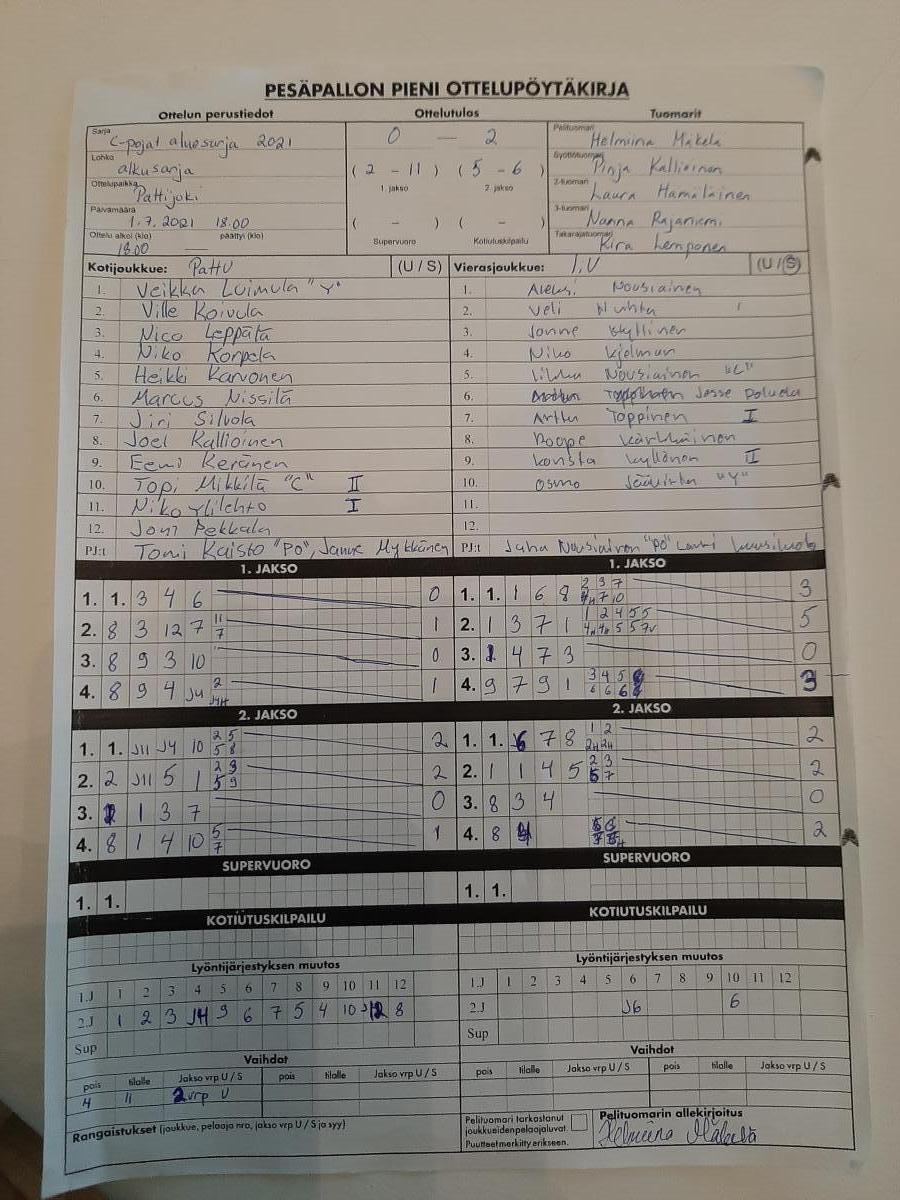 PESÄPALLON PIENI OTTELUPÖYTÄKIRJA
Ottelun perustiedot Ottelutulos Tuomarit
Sarja C-pojat aluesarja 2021 0 — 2 Pelituomari Helmiina Mäkelä
Lohko alkusarja (2 - 11) (5 - 6) Syöttötuomari Pinja Kallioinen
1. jakso 2. jakso
Ottelupaikka Pattijoki 2-tuomari Laura Hämäläinen
Päivämäärä 1.7.2021 18.00 ( - ) ( - ) 3-tuomari Nanna Rajaniemi
Ottelu alkoi (klo) 18.00 päättyi (klo) — Supervuoro Kotiutuskilpailu Takarajatuomari Kira Lemponen
Kotijoukkue: PattU (U / S) Vierasjoukkue: (U / S)
1. Veikka Luimula "Y" 1. Aleksi Nousiainen
2. Ville Koivula 2. Veli
3. Nico Leppälä 3. Jonne Kyllinen
4. Niko Korpela 4. Niko
5. Heikki Karvonen 5. Nousiainen "C"
6. Marcus Nissilä 6. Jesse
7. Jiri Silvola 7. Arttu Toppinen I
8. Joel Kallioinen 8. Roope Kärkkäinen
9. Eemi Keränen 9. Konsta Kyllönen II
10. Topi Mikkilä "C" II 10. Osmo "Y"
11. Niko Ylilehto I 11.
12. Joni Pekkala 12.
PJ:t Tomi Kaisto "PO", Janne Mykkänen PJ:t Juha Nousiainen "PO"
1. JAKSO 1. JAKSO
1. 1. 3 4 6 0 1. 1. 1 6 8 2 3 7 3
2. 8 3 12 7 11 7 1 2. 1 3 7 1 1 2 4 5 5 5
3. 8 9 3 10 0 3. 1 4 7 3 0
4. 8 9 4 J4 2 J4H 1 4. 9 7 9 1 3 4 5 6 6 6 3
2. JAKSO 2. JAKSO
1. 1. J11 J4 10 2 5 5 8 2 1. 1. 6 7 8 1 2 2H 2H 2
2. 2 J11 5 1 2 9 5 9 2 2. 1 1 4 5 2 3 5 7 2
3. 1 3 7 0 3. 8 3 4 0
4. 8 1 4 10 5 7 1 4. 8 2
SUPERVUORO SUPERVUORO
1. 1. 1. 1.
KOTIUTUSKILPAILU KOTIUTUSKILPAILU
Lyöntijärjestyksen muutos Lyöntijärjestyksen muutos
1.J 1 2 3 4 5 6 7 8 9 10 11 12 1.J 1 2 3 4 5 6 7 8 9 10 11 12
2.J 1 2 3 J4 9 6 7 5 4 10 8 2.J J6 6
Sup Sup
Vaihdot Vaihdot
pois tilalle Jakso vrp U / S pois tilalle Jakso vrp U / S pois tilalle Jakso vrp U / S pois tilalle Jakso vrp U / S
4 11 2 vrp U
Rangaistukset (joukkue, pelaaja nro, jakso vrp U / S ja syy) Pelituomari tarkastanut joukkueidenpelaajaluvat. Puutteet merkitty erikseen. Pelituomarin allekirjoitus
Helmiina Mäkelä